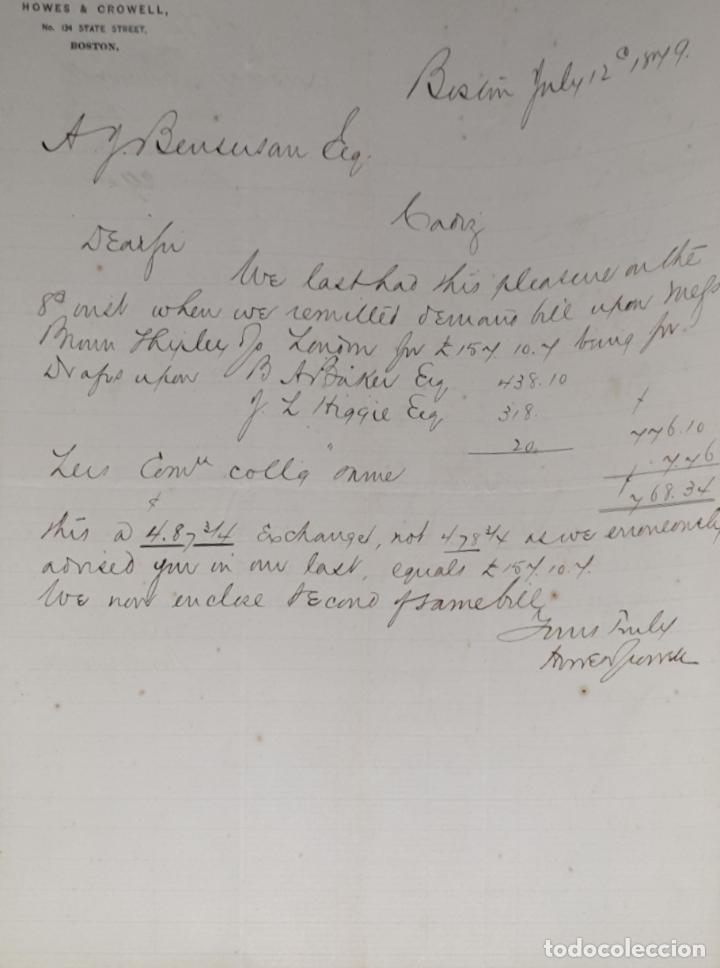 HOWES & CROWELL,
No. 134 STATE STREET,
BOSTON.
Boston July 12 1879.
A. J. Bensusan Esq.
Cadiz
Dear Sir
We last had this pleasure on the
8th inst when we remitted demand bill upon Messrs
Brown Shipley & Co London for £157.10.7 being for
Drafts upon B A Baker Esq 438.10
J. L Higgie Esq 318.
20. $ 776.10
Less Comn collg same 7.76
$ 768.34
this @ $ 4.87 3/4 Exchange, not 478 3/4 as we erroneously
advised you in our last, equals £157.10.7.
We now enclose second of same bill
Yours Truly
Howes & Crowell
todocoleccion